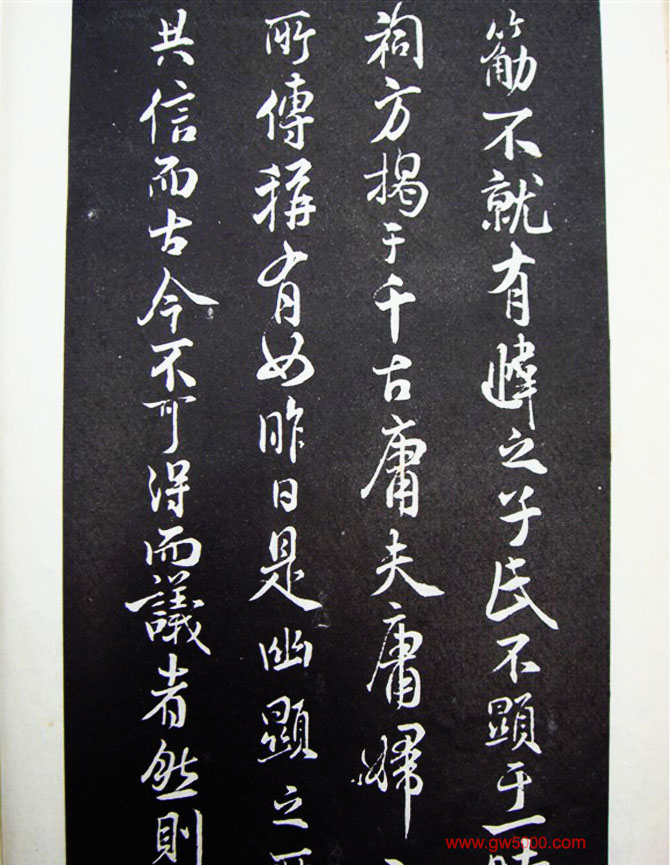 不就有之氏不顯于一時
祠方揭于千古庸夫庸婦
所傳稱有如昨日是幽顯之所
共信而古今不可得而議者然則
www.gw5000.com